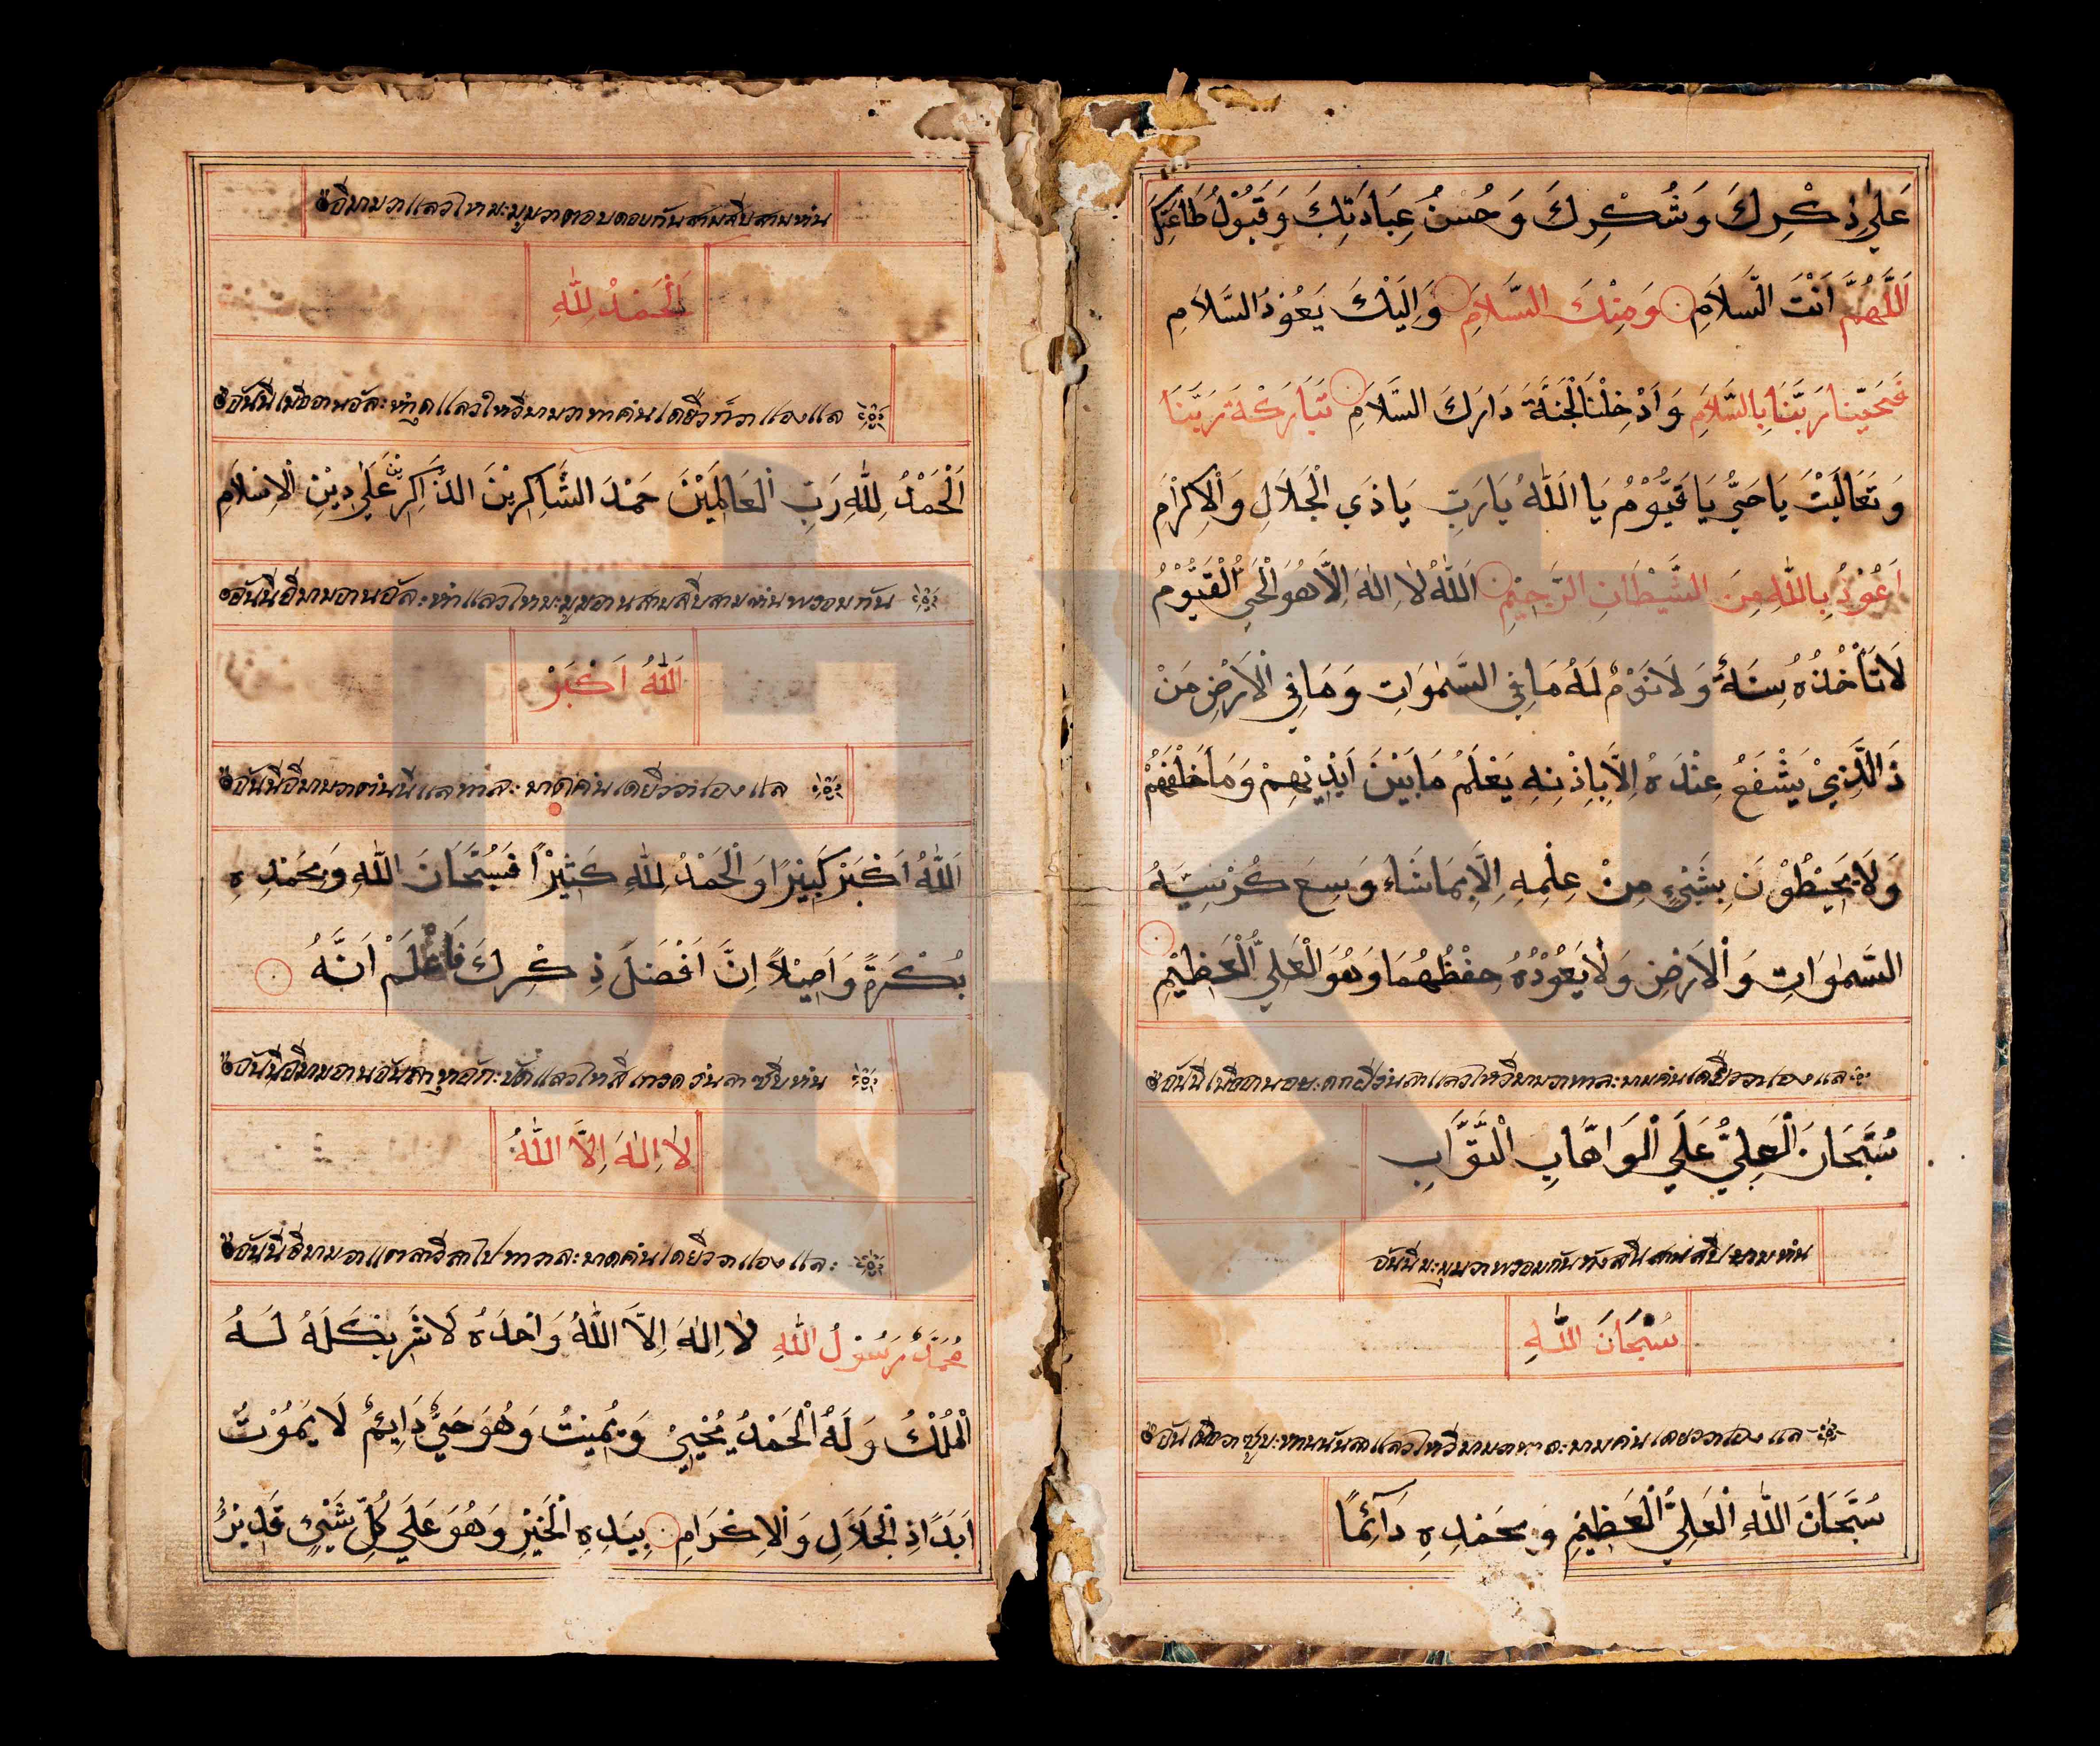 عَلَي ذِكْرِكَ وَشُكْرِكَ وَحُسْنُ عِبَادَتِكَ وَقَبُوْلُ طَاعَتِكَ
اَللّٰهُمَّ اَنْتَ السَّلاَمِ وَمِنْكَ السَّلاَمِ وَاِلَيْكَ يَعُوْدُ السَّلاَمِ
فَحَيِّنَا رَبَّنَا بِالسَّلاَمِ وَاَدْخِلْنَا الْجَنَّةَ دَارَكَ السَّلاَمِ تَبَارَكْةَ رَبَّنَا
وَتَعَالَيْتْ يَا حَيُّ يَا قَيُّوْمُ يَا اَللّٰهُ يَا رَبِّ يَا ذَي الْجَلاَلِ وَالْاِكْرَامِ
اَعُوْذُ بِاللّٰهِ مِنَ الشَّيْطَانِ الرَّجِيْمِ اَللّٰهُ لاَ اِلٰهَ اِلاَّ هُوَ الْحَيُّ الْقَيُّوْمُ
لَا تَأْخُذُهُ سِنَةٌ وَلاَ نَوْمٌ لَهُ مَا فِي السَّمٰوَاتِ وَمَا فِي الْاَرْضِ مَنْ
ذَالَّذِيْ يَشْفَعُ عِنْدَهُ اِلاَّ بِاِذْنِهِ يَعْلَمُ مَا بَيْنَ اَيْدِيْهِمْ وَمَا خَلْفَهُمْ
وَلَا يُحِيْطُوْنَ بِشَيْءٍ مِنْ عِلْمِهِ اِلاَّ بِمَا شَاءَ وَسِعَ كُرْسِيَّهُ
السَّمٰوَاتِ وَالْاَرْضِ وَلاَ يَعُوْدُهُ حِفْظُهُمَا وَهُوَ الْعَلِيُّ الْعَظِيْمِ
อันนี่เมื่ออาน แลวไหอีมามวา คนเดยีววาเองแล
سُبْحَانَ الْعَلِيُّ عَلَي الْوَاهَّابِ التَّوَّابِ
อันนี่มะมุมวาพรอมกันทังสีน สามสีบสามหน
سُبْحَانَ اللّٰهِ
แลวไหอีมามวา คนเดยววาเองแล
سُبْحَانَ اللّٰهِ الْعَلِيُّ الْعَظِيْمِ وَبِحَمْدِهِ دَآئِمًا
อีมามวาแลวไหมะมูมวาตอบดอยกันสามสีบสามหน
اَلْحَمْدُ لِلّٰهِ
อันนี่เมื่ออานอัละหำดุแลวไหอีมามวา คนเดยีวก็วาเองแล
اَلْحَمْدُ لِلّٰهِ رَبِّ الْعَالَمِيْنَ حَمْدَ الشَّاكِرِيْنَ الذَّاكِرِيْنَ عَلَي دِيْنِ الْاِسْلاَمِ
อันนี่อีมามอานอัละหำแลวไหมะมูมอานสามสีบสามหนพรอมกัน
اَللّٰهُ اَكْبَرْ
อันนี่อีมามวา คนเดยีววาเองแล
اَللّٰهُ اَكْبَرْ كَبِيْرًا وَالْحَمْدُ لِلّٰهِ كَثِيْرًا فَسُبْحَانَ اللّٰهِ وَبِحَمْدِهِ
بُكْرَةً وَاَصِيْلاً اِنَّ اَفْضَلَ ذِكْرِكَ فَاعْلَمْ اَنَّهُ
อันนี่อีมามอาน แลวไห
لاَ اِلٰهَ اِلاَّ اللّٰهُ
อันนี่อีมามวา คนเดยีววาเองแล
مُحَمَّدٌ رَسُوْلُ اللّٰهِ لاَ اِلٰهَ اِلاَّ اللّٰهُ وَاحْدَهُ لَا شَرِيْكَلَهُ لَهُ
الْمُلْكُ وَلَهُ الْحَمْدُ يُحْيِيْ وَيُمِيْتُ وَهُوَ حَيٌّ دَايِمٌ لَا يَمُوْتُ
اَبَدًا ذِ الْجَلاَلِ وَالْاِكْرَامِ بِيَدِهِ الْخَيْرِ وَهُوَ عَلَي كُلِّ شَيْئٍ قَدِيْرٌ